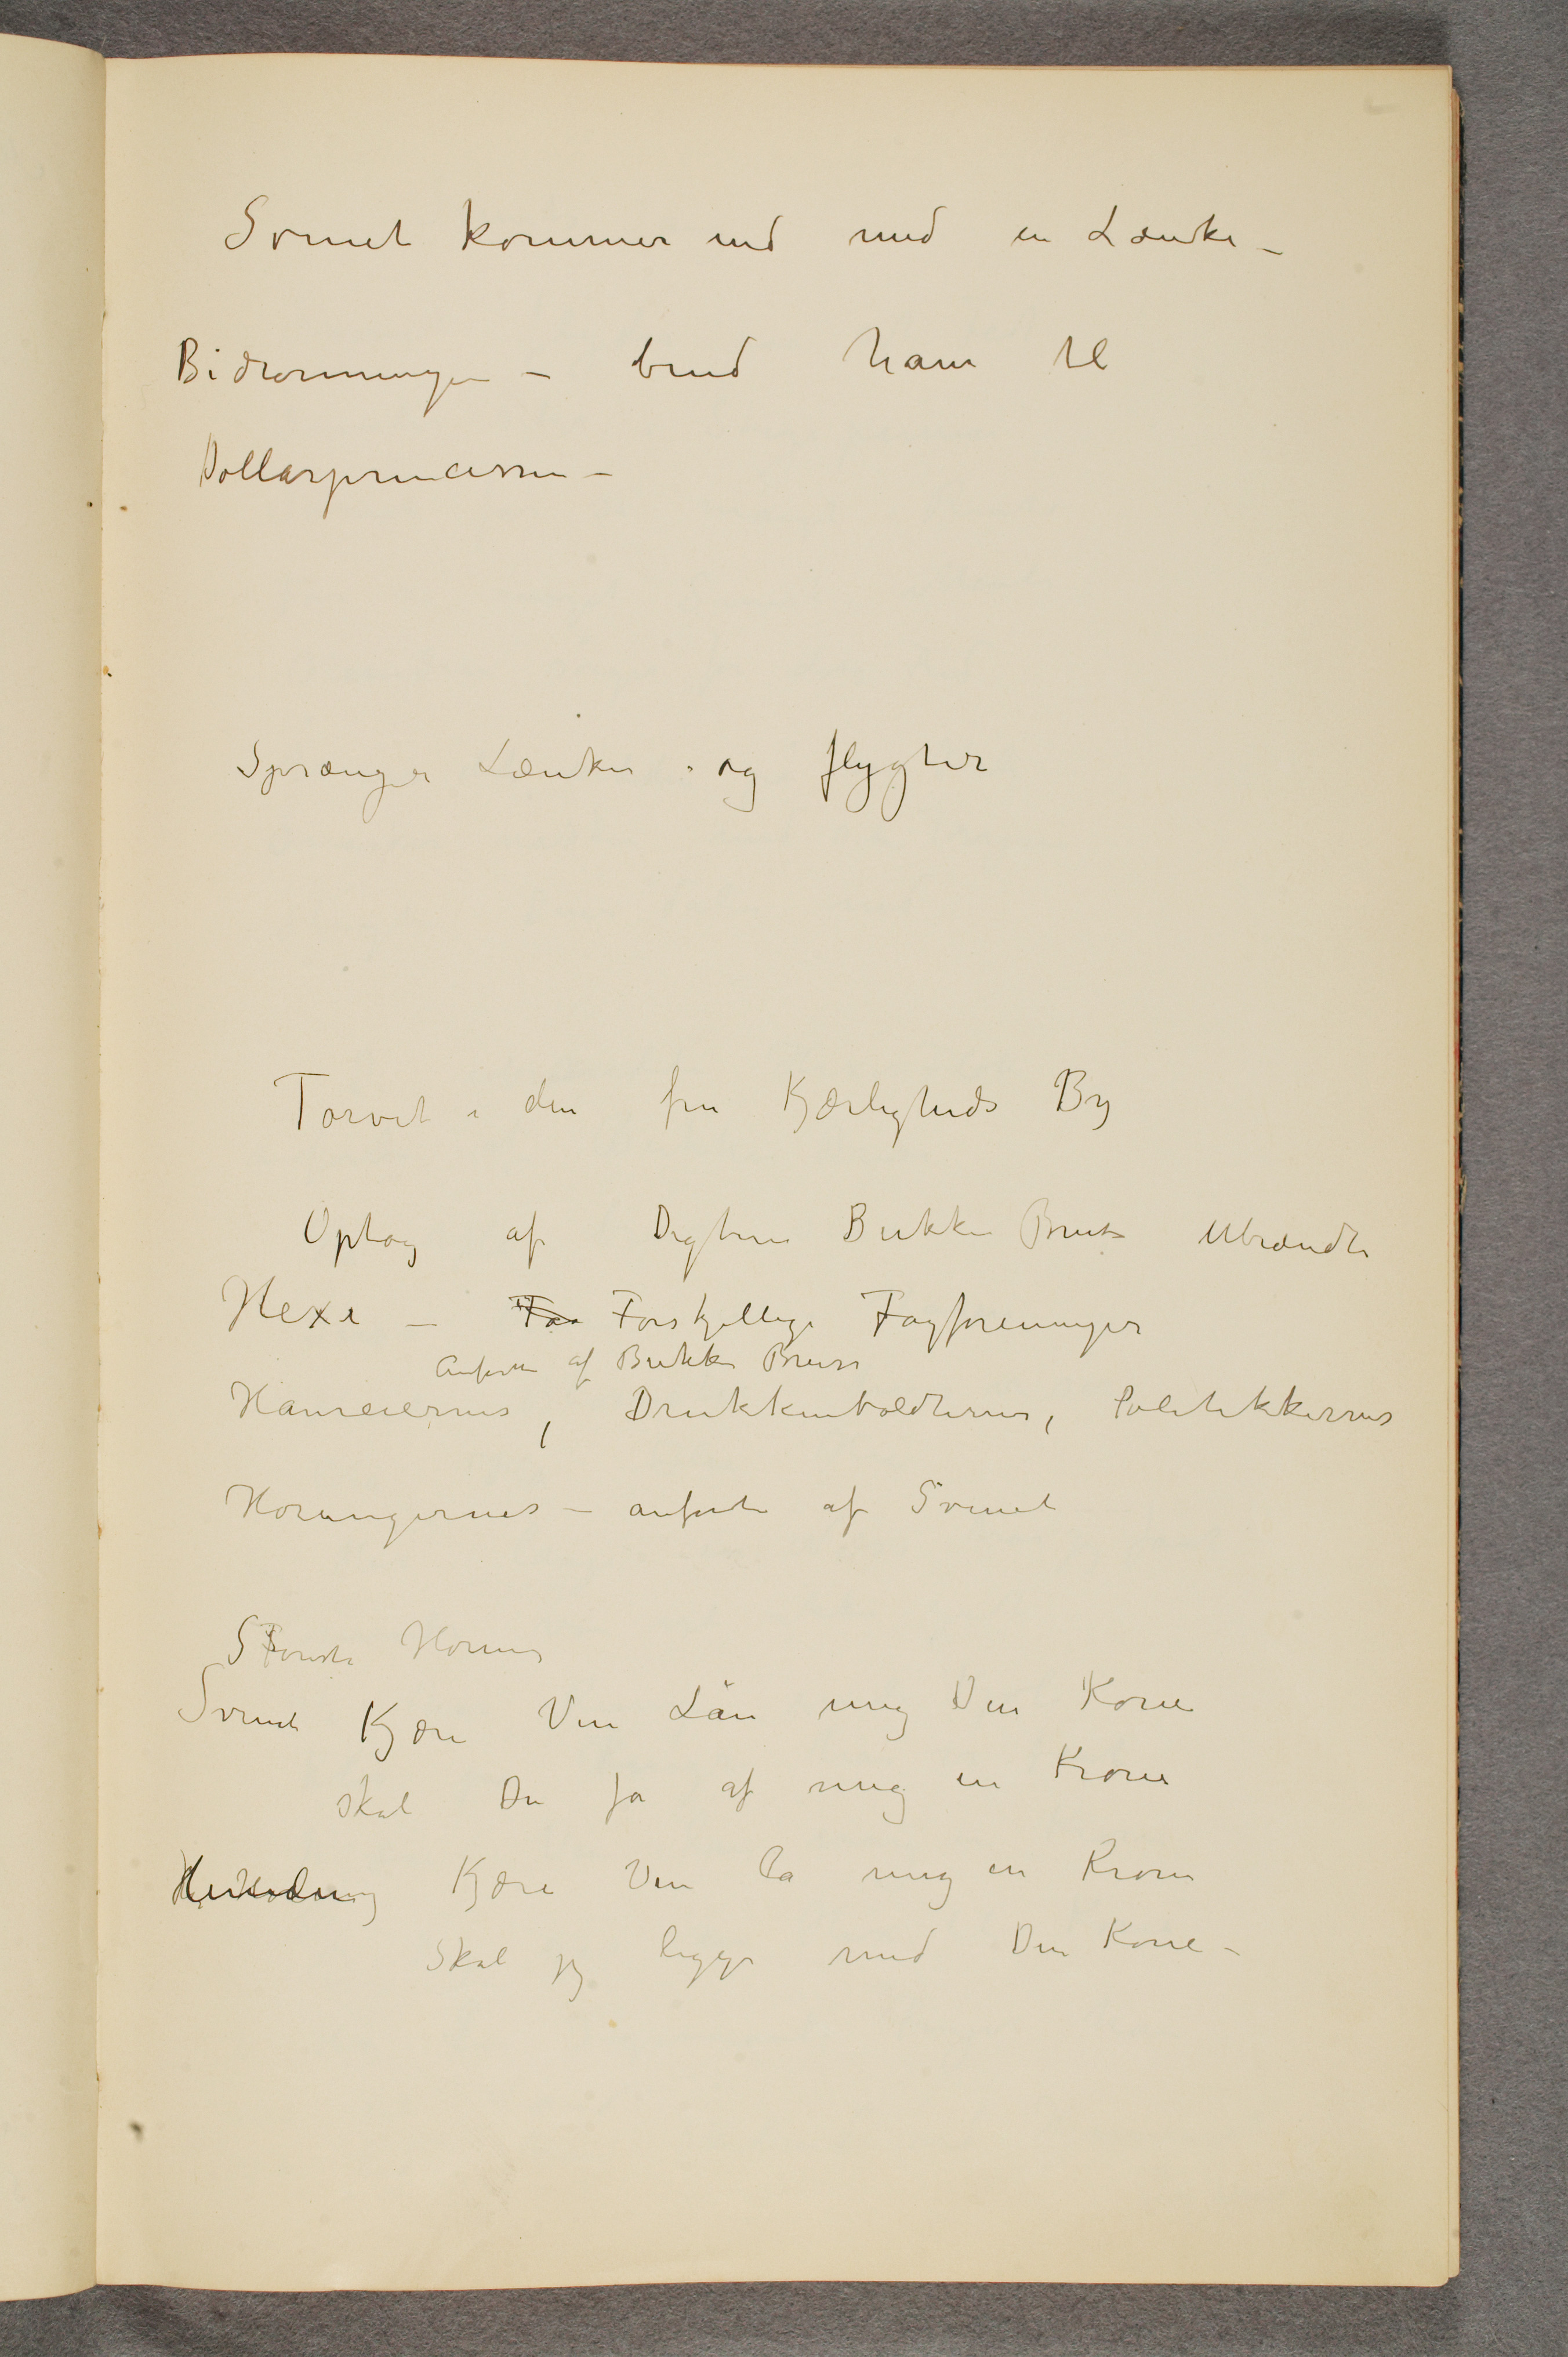 Svinet kommer ind med en Lænke –
Bidronningen – bind ham til
Dollarprincessen –
Sprænger Lænker og flygter
Torvet i den frie Kjærligheds By
Optog af Digteren Bukken Bruse Ubrændte
Hexe – Faa Forskjellige Fagforeninger
Anført af Bukken Bruse
Hanreiernes, Drukkenboldternes, Politikkernes
Horungernes – anført af Svinet
Første
Svinet Kjære Ven Lån mig Din Kone
skal Du få af mig en Krone
Kjære Ven La mig en Krone
Skal jeg ligge med Din Kone –